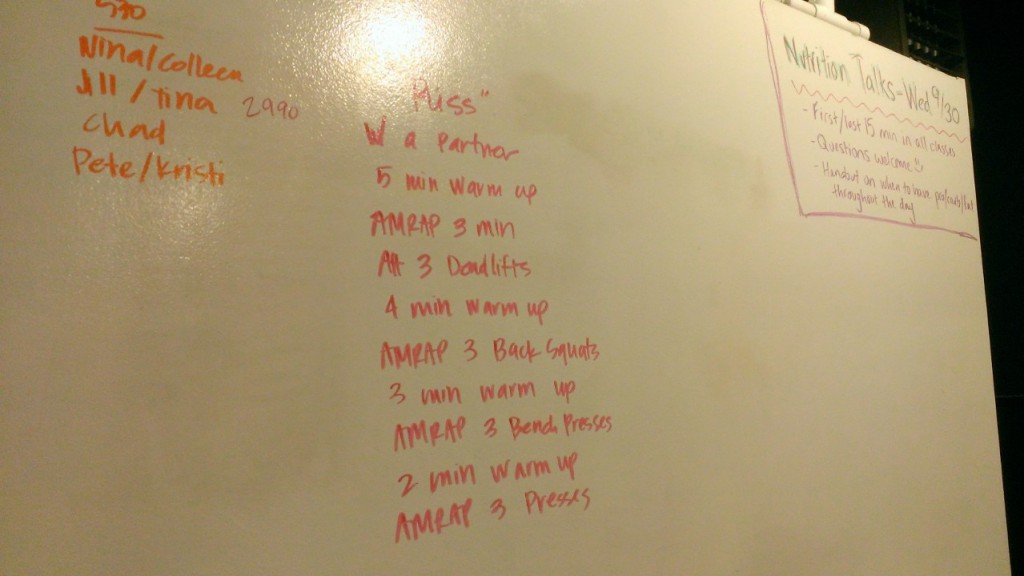 530
Nina/Colleen
Jill/Tina 2990
Chad
Pete/Kristi
"Puss"
W a partner
5 min warm up
AMRAP 3 min
Alt 3 Deadlifts
4 min warm up
AMRAP 3 Back Squats
3 min warm up
AMRAP 3 Bench Presses
2 min warm up
AMRAP 3 Presses
Nutrition Talks - Wed 9/30
- First/last 15 min in all classes
- Questions welcome
- Handout on when to have pro/carb/fat
throughout the day